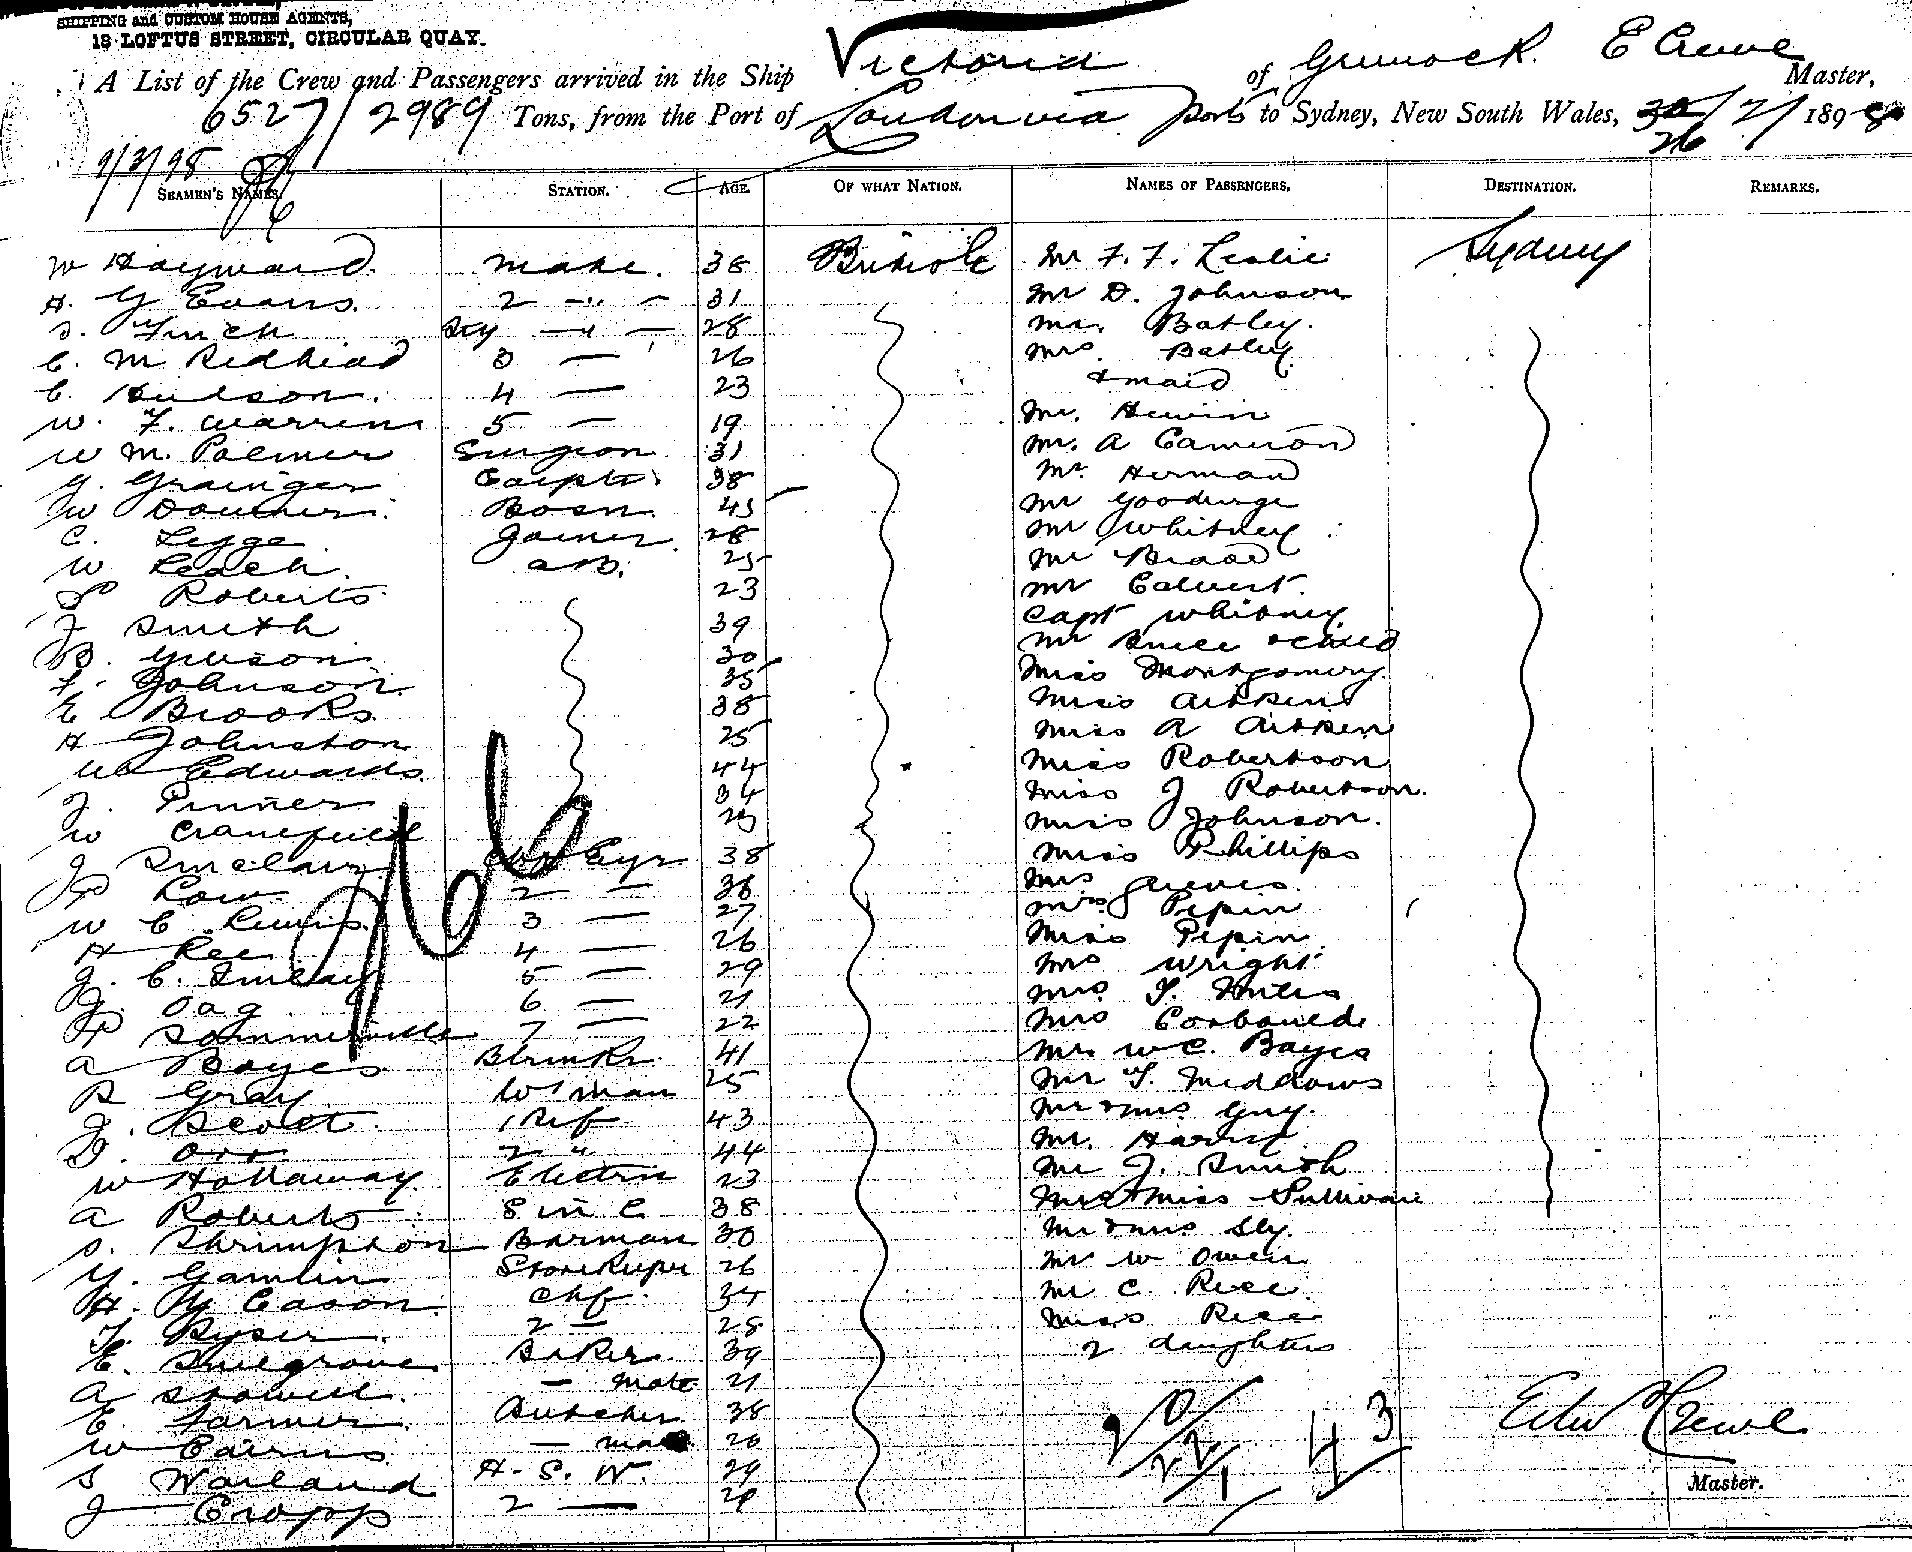 SHIPPING and CUSTOM HOUSE AGENTS,
18 LOFTUS STREET, CIRCULAR QUAY.
A List of the Crew and Passengers arrived in the Ship Victoria of Greenock. E Crewe Master,
6527/2989 Tons, from the Port of London via ports to Sydney, New South Wales, 26/2/1898
1/3/98
SEAMEN'S NAMES. STATION. AGE OF WHAT NATION. NAMES OF PASSENGERS. DESTINATION. REMARKS.
W Hayward. Mate. 38 British Mr F. F. Leslie Sydney
A. G Evans. 2 -"- 31 Mr D. Johnson
S. Finch 28 Mr. Batley.
C. M Redhead 3 — 26 Mrs Batley
C. Hudson. 4 — 23 & maid
W. F. Warren 5 — 19 Mr. Hewin
W M. Palmer Surgeon 31 Mr. A Cameron
G. Grainger Carptr. 38 Mr. Herman
W Bosn. 45 Mr Goodinge
C. Legge Joiner. 28 Mr Whitney
W Leach. AB. 25 Mr
P Roberts 23 Mr Calvert.
J Smith 39 Capt Whitney
B. Gibson 30 Mr Bruce & child
F. Johnson. 35 Miss Montgomery
E Brooks 38 Miss Aitken
H Johnston 25 Miss A Aitken
W Edwards. 44 Miss Robertson
J. Pinner 34 Miss J Robertson.
W Cranefield Miss Johnson.
J Sinclair 38 Miss Phillips
P Low 2 — 38 Mrs
W C Lewis. 3 — 27 Mrs Pepin
H Ree 4 — 26 Miss Pepin
J. C. Imlay 5 — 29 Mrs Wright
J. Oag 6 — 21 Mrs
P Sommerville 7 — 22 Mrs
A Bayes 41 Mr W C. Bayes
R Gray W'man 25 Mr T. Meddows
J. Scott 1 Ref 43 Mr & Mrs Guy.
D. Orr 2 " 44 Mr.
W Hollaway. Electrn 23 Mr J. Smith
A Roberts S in C 38 Mrs & Miss Sullivan
S. Shrimpton Barman 30 Mr & Mrs Sly.
Y. Gamlin Storekeeper 26 Mr W Owen
H. Y Cason Chf. 34 Mr C. Rice
F. Ryser 2 — 28 Miss Rice
E. Snelgrove Baker. 39 2 daughters
A Stowell. — Mate 21
E. Farmer Butcher 38
W Cairns — Mate 26 Edw Crewe
S Warland A. S. W. 29 Master.
J Cropp 2 — 43